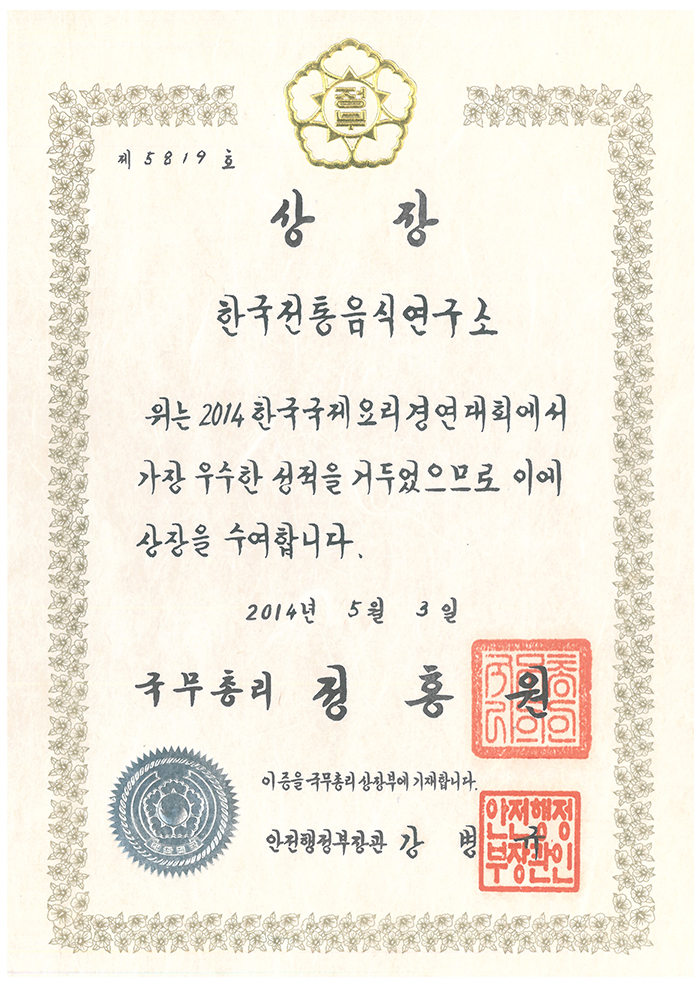 정부
제 5819 호
상 장
한국전통음식연구소
위는 2014 한국국제요리경연대회에서
가장 우수한 성적을 거두었으므로 이에
상장을 수여합니다.
2014년 5월 3일
국무총리 정 홍 원
이 증을 국무총리 상장부에 기재합니다.
안전행정부장관 강 병 규
안전행정
부장관인